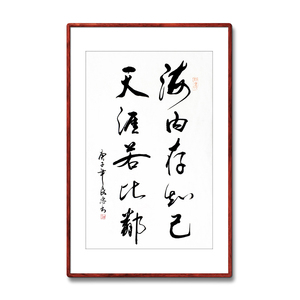 海内存知己
天涯若比邻
庚子年